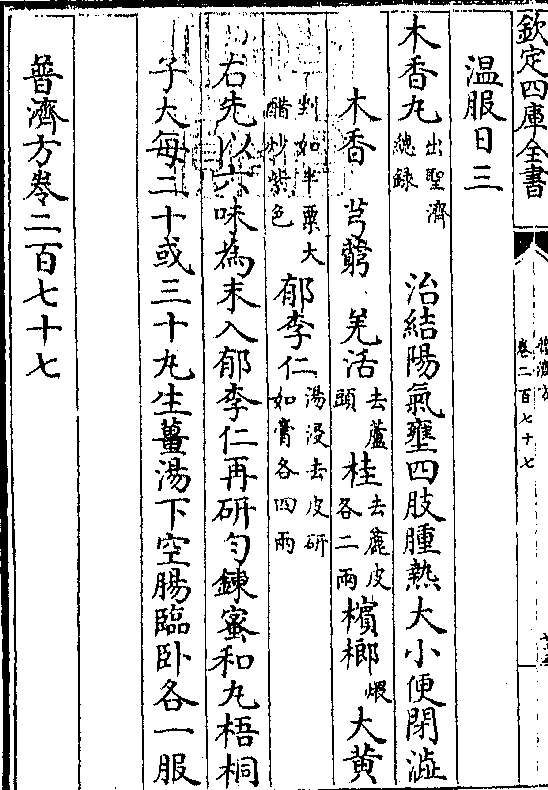 欽定四庫全書
卷二百七十七
温服日三
木香丸出聖濟總錄　治結陽氣壅四肢腫熱大小便閉澁
木香　芎藭　羌活去蘆頭　桂去麄皮各二兩　檳榔煨　大黄
剉如半粟大醋炒紫色　郁李仁湯浸去皮研如膏各四兩
右先以六味為末入郁李仁再研勻鍊蜜和丸梧桐
子大每二十或三十丸生薑湯下空腸臨卧各一服
普濟方卷二百七十七